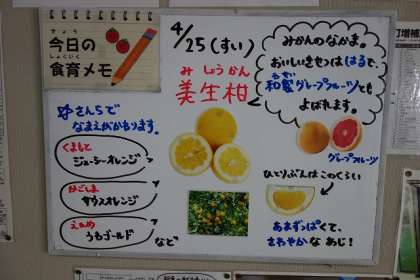 きょう
今日の
しょくいく
食育メモ
4/25(すい)
みしょうかん
美生柑
みかんのなかま。
おいしいきせつははるで、
わせい
和製グレープフルーツとも
よばれます。
グレープフルーツ
☆さんちで
なまえがかわります。
くまもと
ジューシーオレンジ
かごしま
サウスオレンジ
えひめ
うちゴールド
など
ひとりぶんはこのくらい
あまずっぱくて、
さわやかなあじ！
町増補